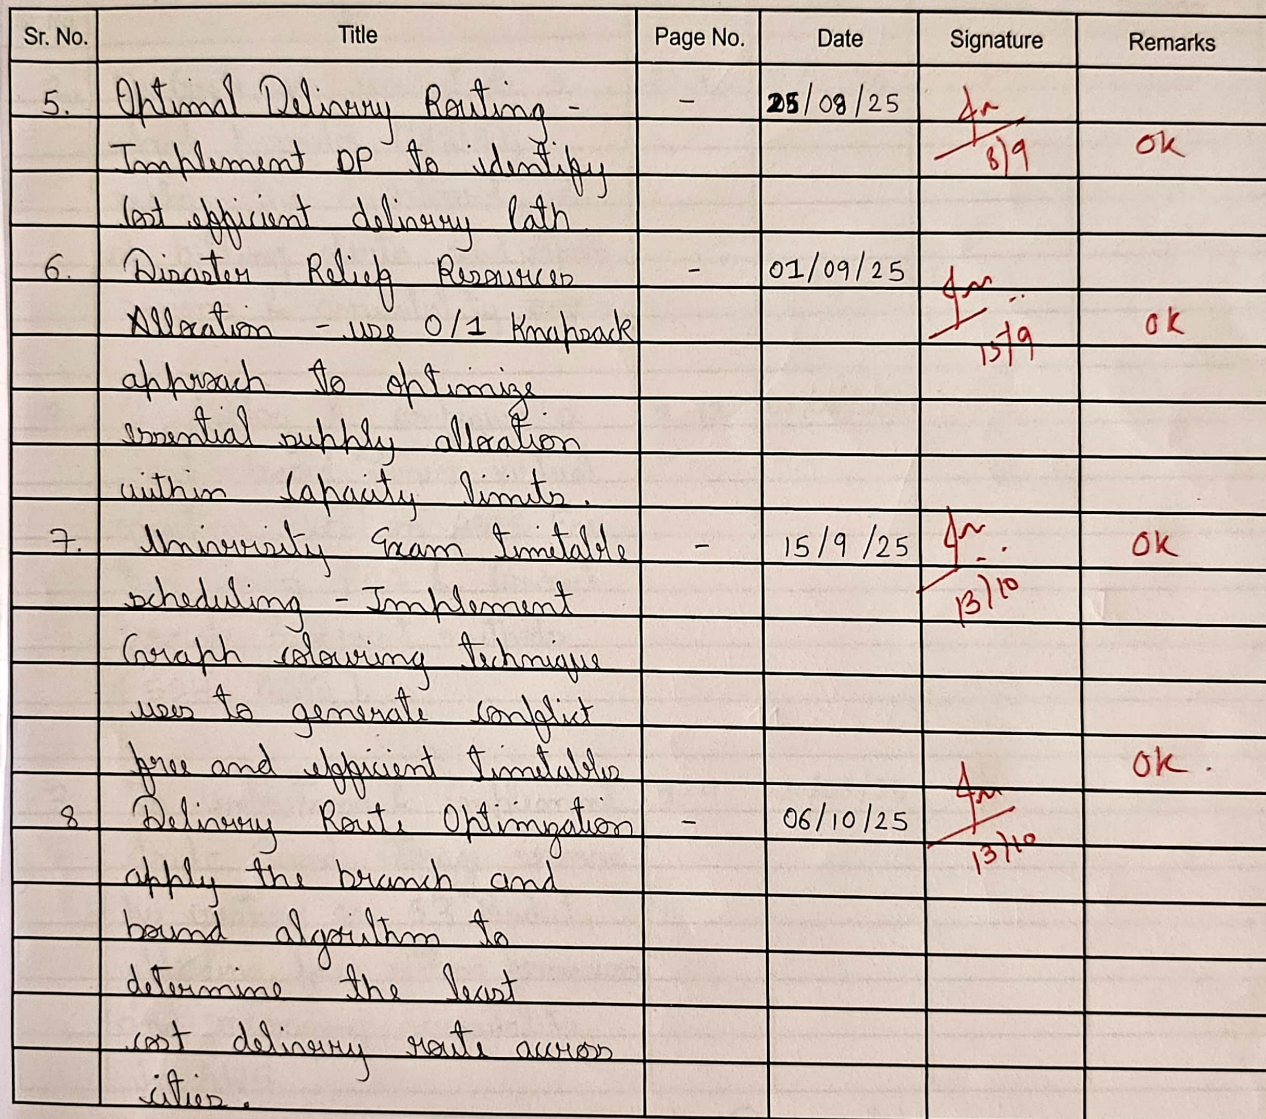 Sr. No. Title Page No. Date Signature Remarks
5. Optimal Delivery Routing - - 25/08/25
Implement DP to identify 8/9 OK
cost efficient delivery Path
6. Disaster Relief Resources - 01/09/25
Allocation - use 0/1 Knapsack 15/9 OK
approach to optimize
essential supply allocation
within capacity limits.
7. University Exam timetable - 15/9/25 OK
scheduling - Implement 13/10
Graph colouring technique
uses to generate conflict
free and efficient timetables OK.
8 Delivery Route Optimization - 06/10/25
apply the branch and 13/10
bound algorithm to
determine the least
cost delivery route across
cities.